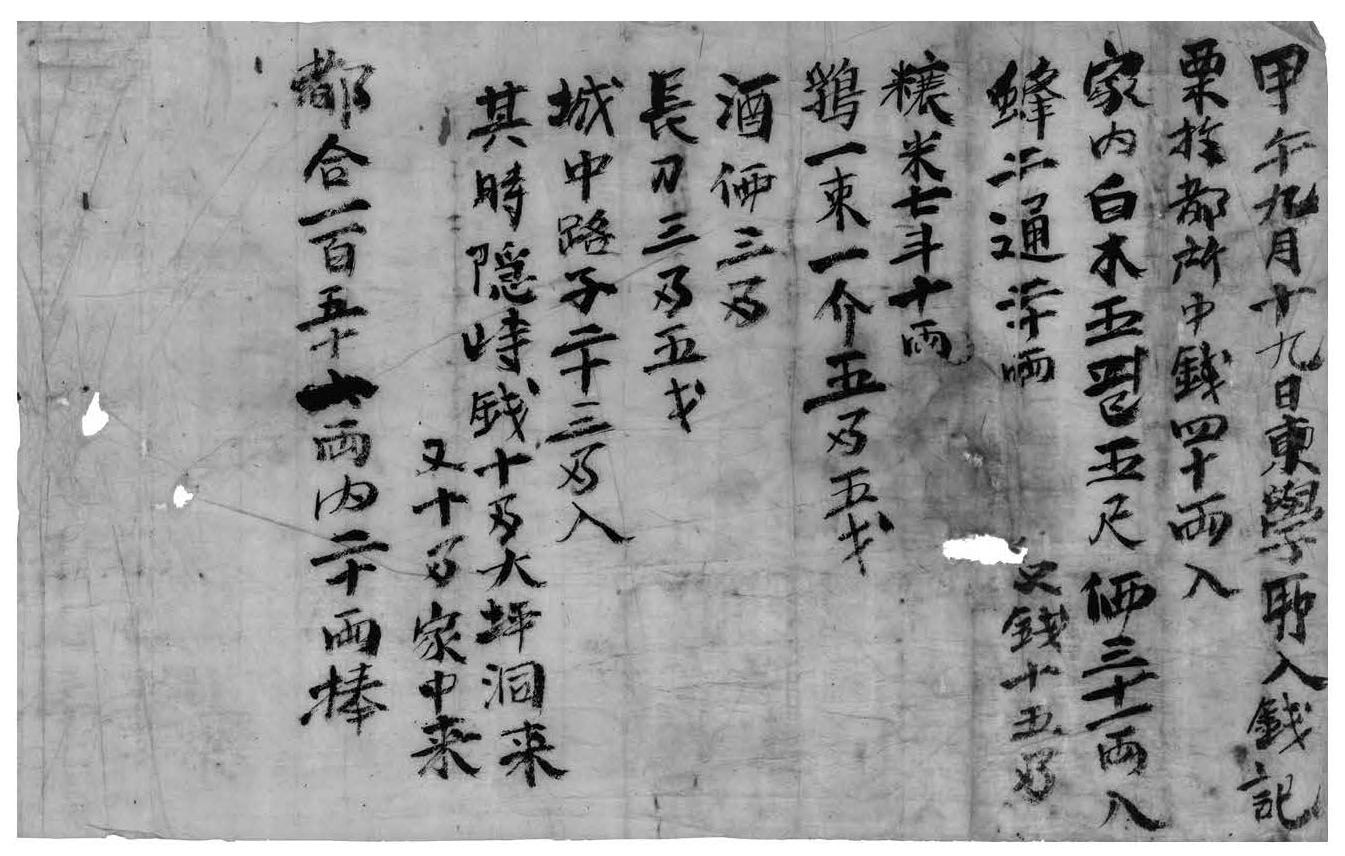 甲午九月十九日東學所入錢記
栗持都所中錢四十兩入
家内白木五疋五尺価三十一兩入
蜂二通 兩 又錢十五刄
粮米七斗十兩
鶏一束一介五刄五戈
酒価三刄
長刀三刄五戈
城中路子二十三刄入
其時隠峙錢十刄大坪洞来
又十刄家中来
都合一百五十六兩内二十兩捧